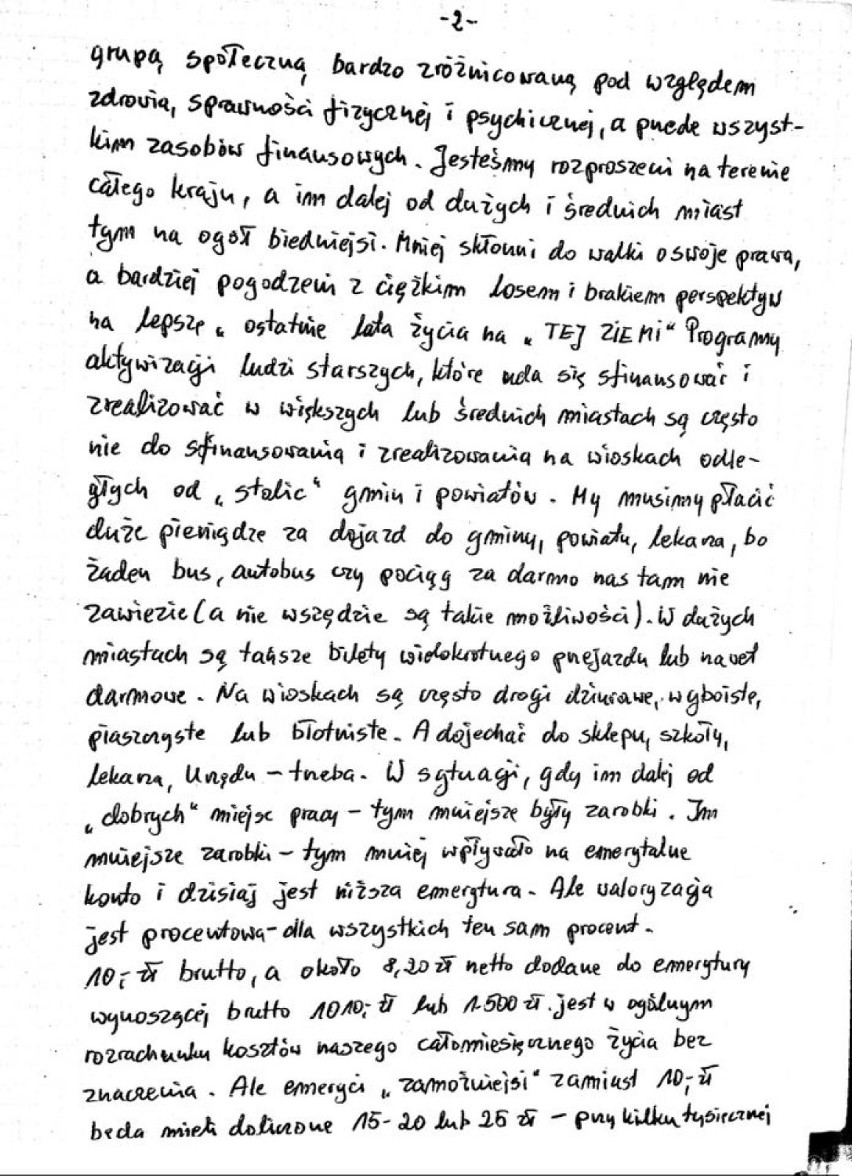 -2-
grupą społeczną bardzo zróżnicowaną pod względem
zdrowia, sprawności fizycznej i psychicznej, a przede wszyst-
kim zasobów finansowych. Jesteśmy rozproszeni na terenie
całego kraju, a im dalej od dużych i średnich miast
tym na ogół biedniejsi. Mniej skłonni do walki o swoje prawa,
a bardziej pogodzeni z ciężkim losem i brakiem perspektyw
na lepsze „ostatnie lata życia na „TEJ ZIEMI" Programy
aktywizacji ludzi starszych, które uda się sfinansować i
zrealizować w większych lub średnich miastach są często
nie do sfinansowania i zrealizowania na wioskach odle-
głych od „stolic" gmin i powiatów. My musimy płacić
duże pieniądze za dojazd do gminy, powiatu, lekarza, bo
żaden bus, autobus czy pociąg za darmo nas tam nie
zawiezie (a nie wszędzie są takie możliwości). W dużych
miastach są tańsze bilety wielokrotnego przejazdu lub nawet
darmowe. Na wioskach są często drogi dziurawe, wyboiste,
piaszczyste lub błotniste. A dojechać do sklepu, szkoły,
lekarza, Urzędu - trzeba. W sytuacji, gdy im dalej od
„dobrych" miejsc pracy - tym mniejsze były zarobki. Im
mniejsze zarobki - tym mniej wpływało na emerytalne
konto i dzisiaj jest niższa emerytura. Ale waloryzacja
jest procentowa - dla wszystkich ten sam procent.
10,- zł brutto, a około 8,20 zł netto dodane do emerytury
wynoszącej brutto 1010,- zł lub 1.500 zł. jest w ogólnym
rozrachunku kosztów naszego całomiesięcznego życia bez
znaczenia. Ale emeryci „zamożniejsi" zamiast 10,- zł
będą mieli doliczone 15-20 lub 25 zł - przy kilku tysięcznej